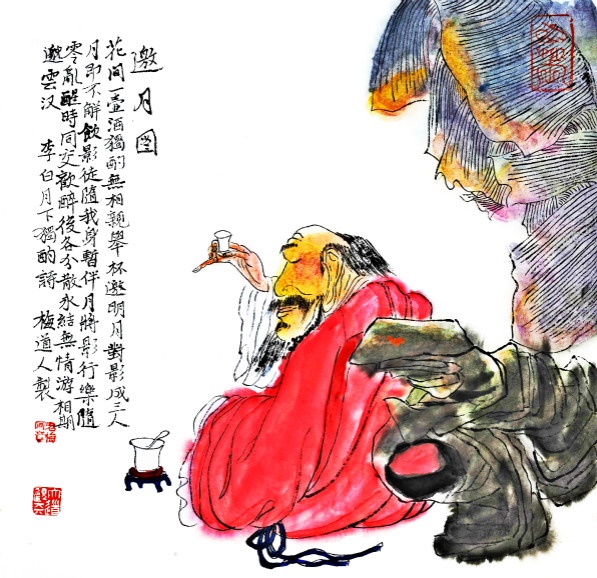 邀月图
花间一壶酒獨酌無相親舉杯邀明月對影成三人
月即不解飲影徒隨我身暫伴月將影行樂隨
零亂醒時同交歡醉後各分散永結無情游相期
邈雲汉 李白月下獨酌詩 梅道人製